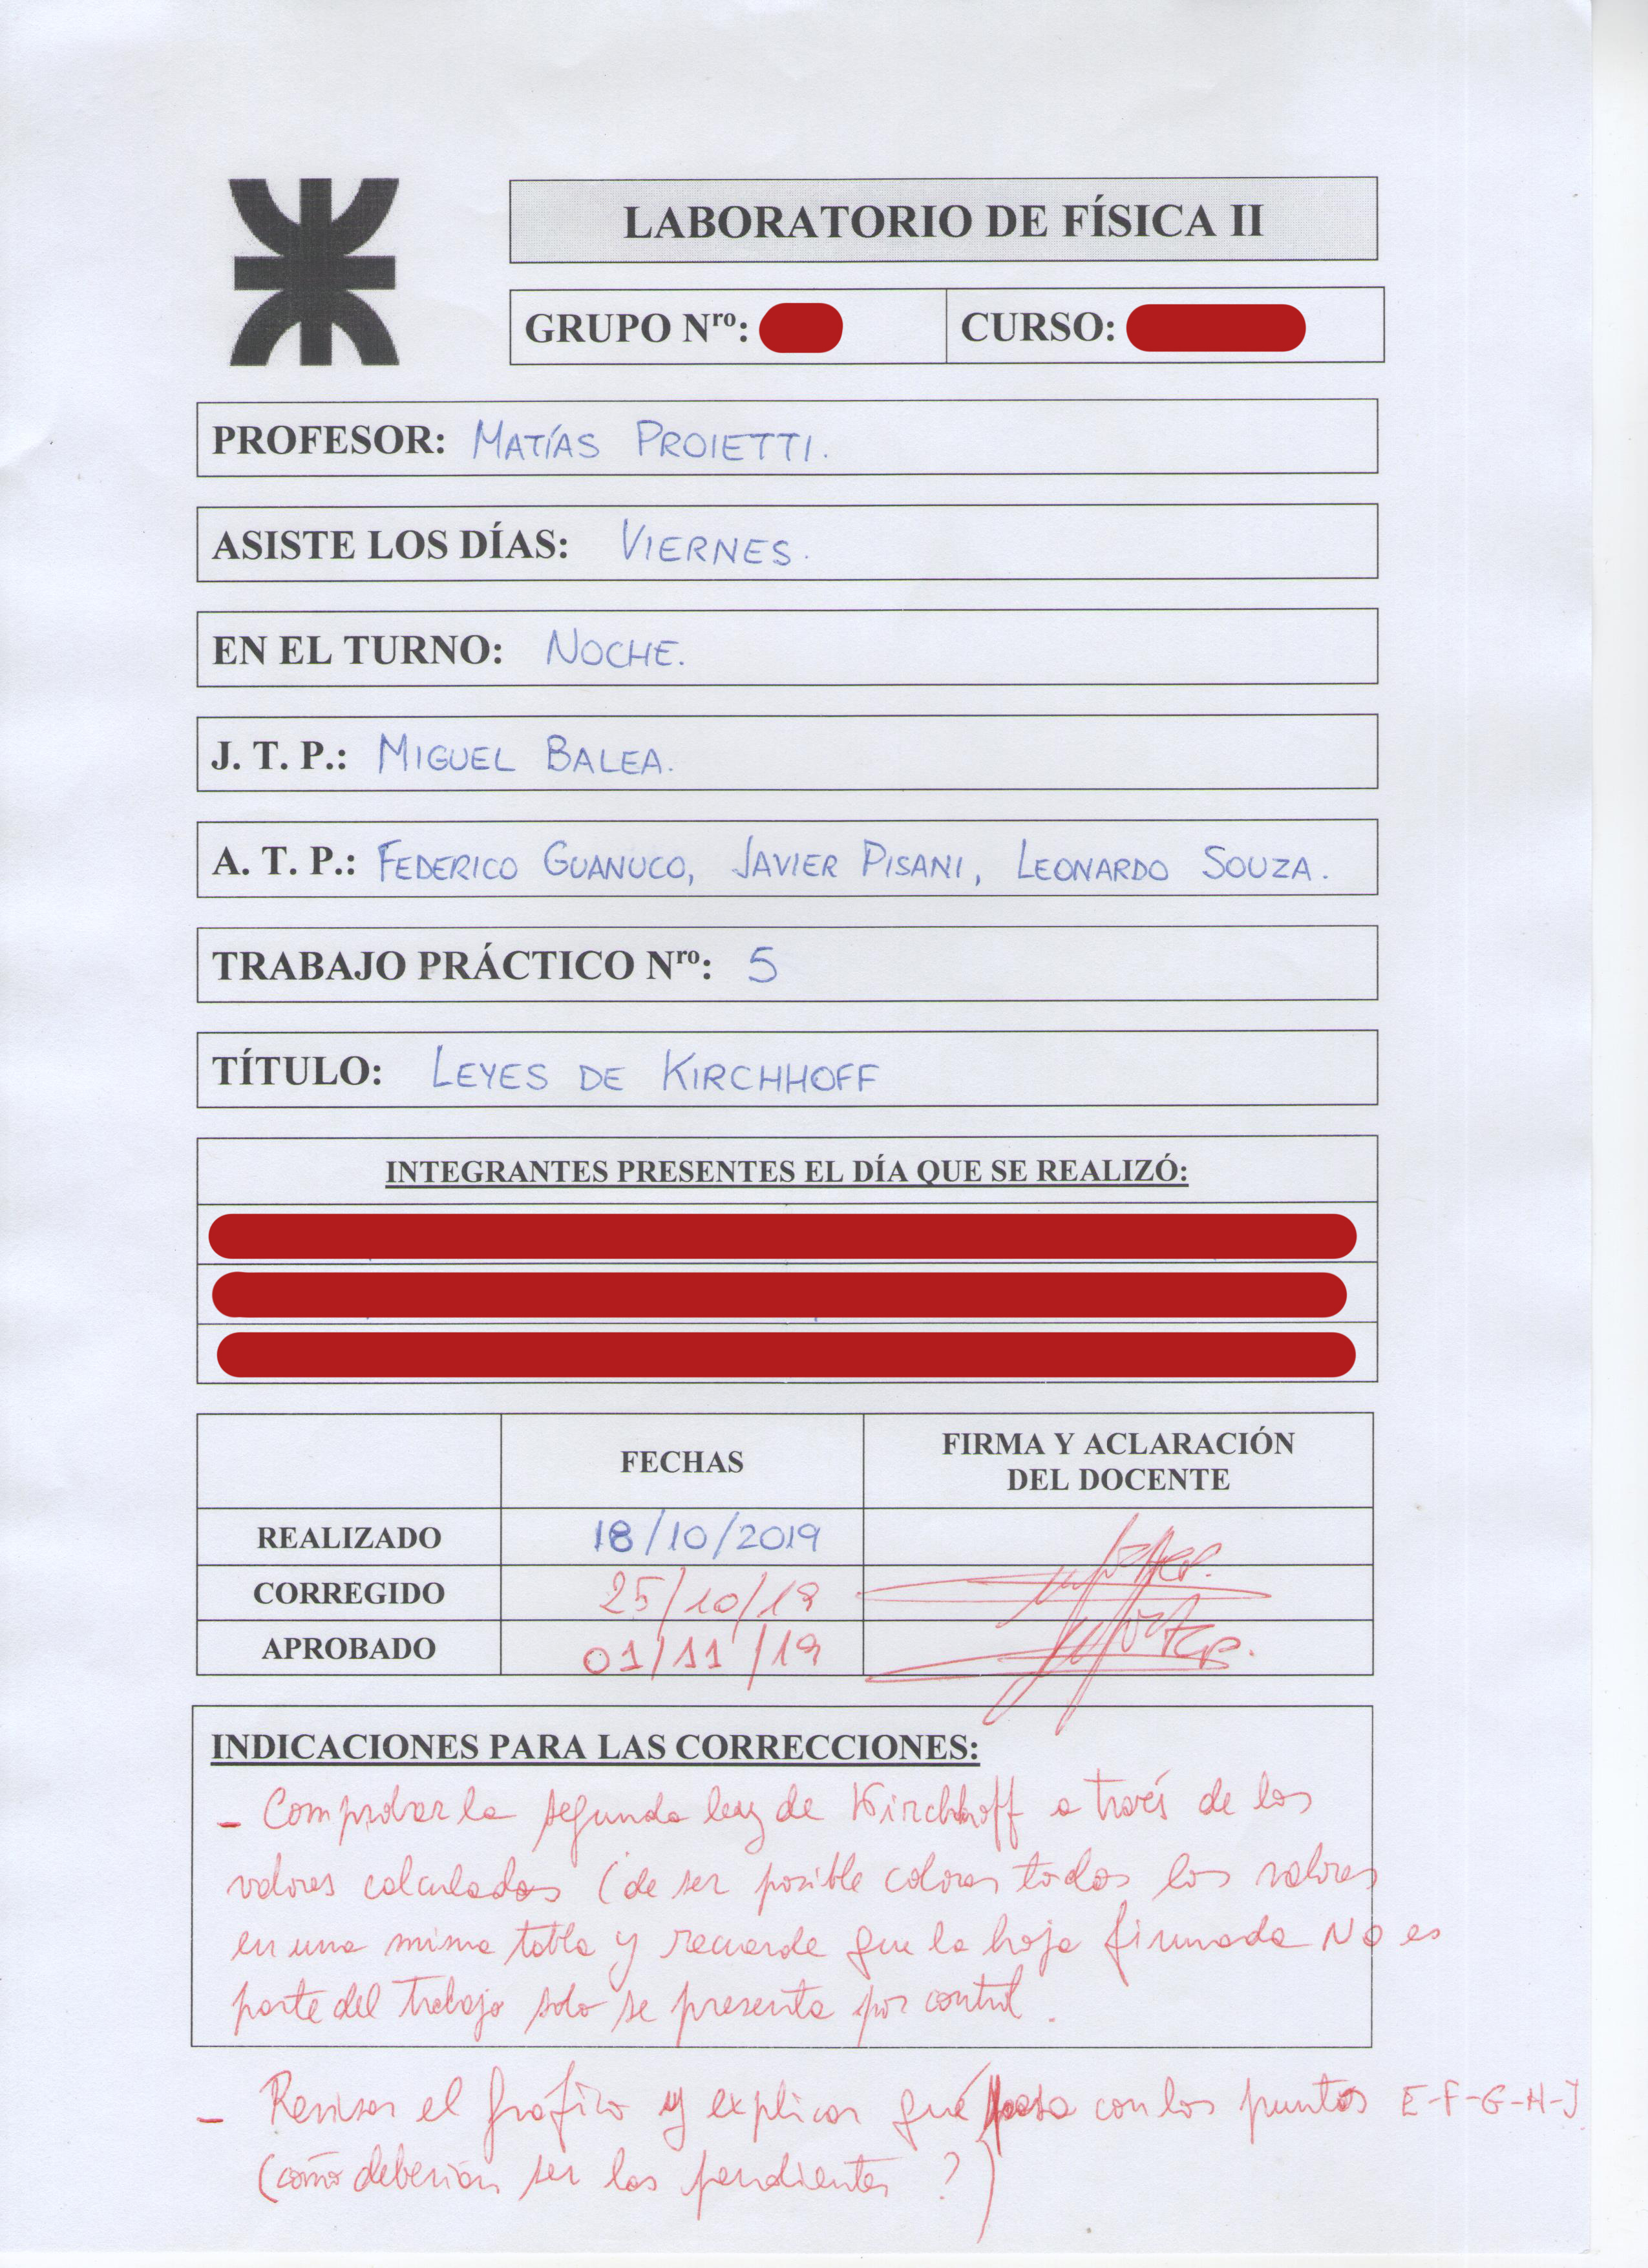 LABORATORIO DE FÍSICA II
GRUPO Nʳᵒ: CURSO:
PROFESOR: MATÍAS PROIETTI.
ASISTE LOS DÍAS: VIERNES.
EN EL TURNO: NOCHE.
J. T. P.: MIGUEL BALEA.
A. T. P.: FEDERICO GUANUCO, JAVIER PISANI, LEONARDO SOUZA.
TRABAJO PRÁCTICO Nʳᵒ: 5
TÍTULO: LEYES DE KIRCHHOFF
INTEGRANTES PRESENTES EL DÍA QUE SE REALIZÓ:
FECHAS FIRMA Y ACLARACIÓN
DEL DOCENTE
REALIZADO 18/10/2019
CORREGIDO 25/10/19
APROBADO 01/11/19
INDICACIONES PARA LAS CORRECCIONES:
- Comprobar la segunda ley de Kirchhoff a través de los
valores calculados (de ser posible colocar todos los valores
en una misma tabla y recuerde que la hoja firmada NO es
parte del trabajo solo se presenta por control.
- Revisar el gráfico y explicar qué pasa con los puntos E-F-G-H-J
(cómo deberían ser las pendientes?)